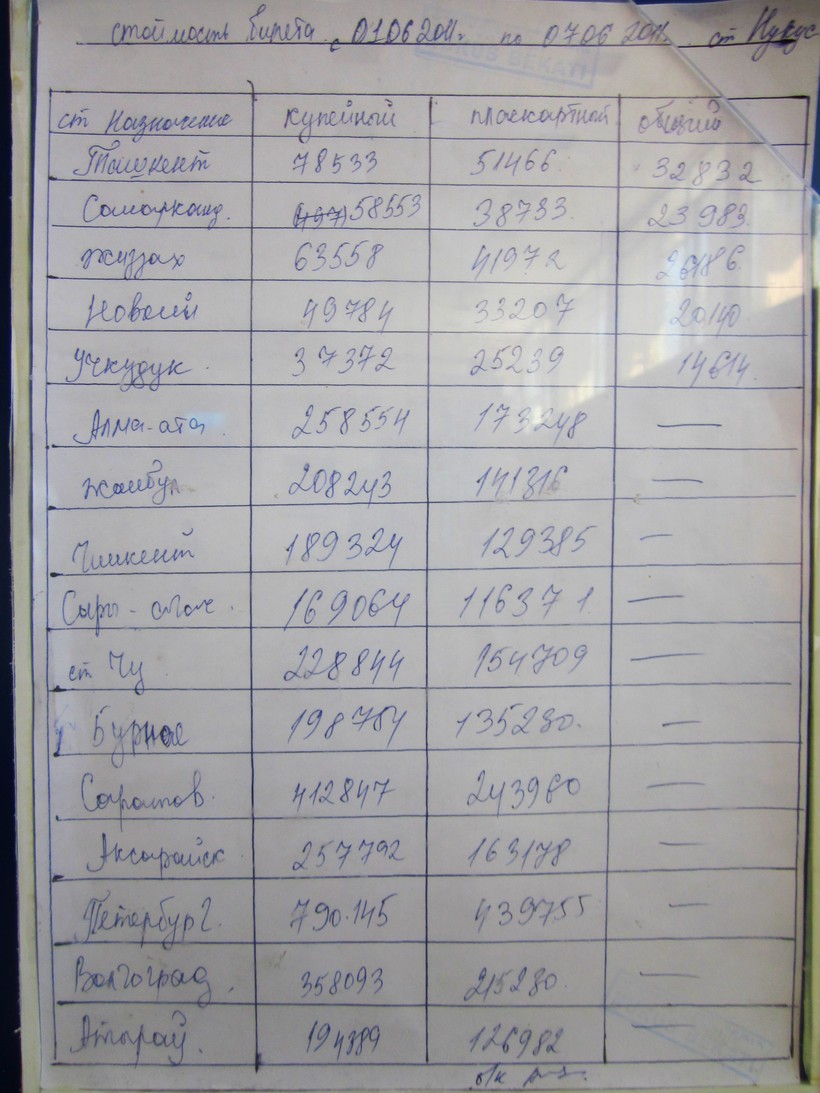 стоймость билета с 01.06 2011г. по 07.06 2011г. ст Нукус
NUKUS BEKATI
ст Назначение купейный пласкартной общий
Ташкент 78533 51466 32832
Самарканд. 58553 38733 23983
Жиззах 63558 41972 26186
Новоий 49784 33207 20140
Учкудук 37372 25239 14614
Алма-ата 258554 173248 —
Жамбул 208243 141316 —
Чимкент 189324 129385 —
Сары-агач. 169064 116371 —
ст Чу 228844 154709 —
Бурное 198754 135280. —
Саратов. 412847 243980 —
Аксарайск 257792 163178 —
Петербург. 790.145 439755 —
Волгоград. 358093 215280. —
Атырау. 194389 126982 —